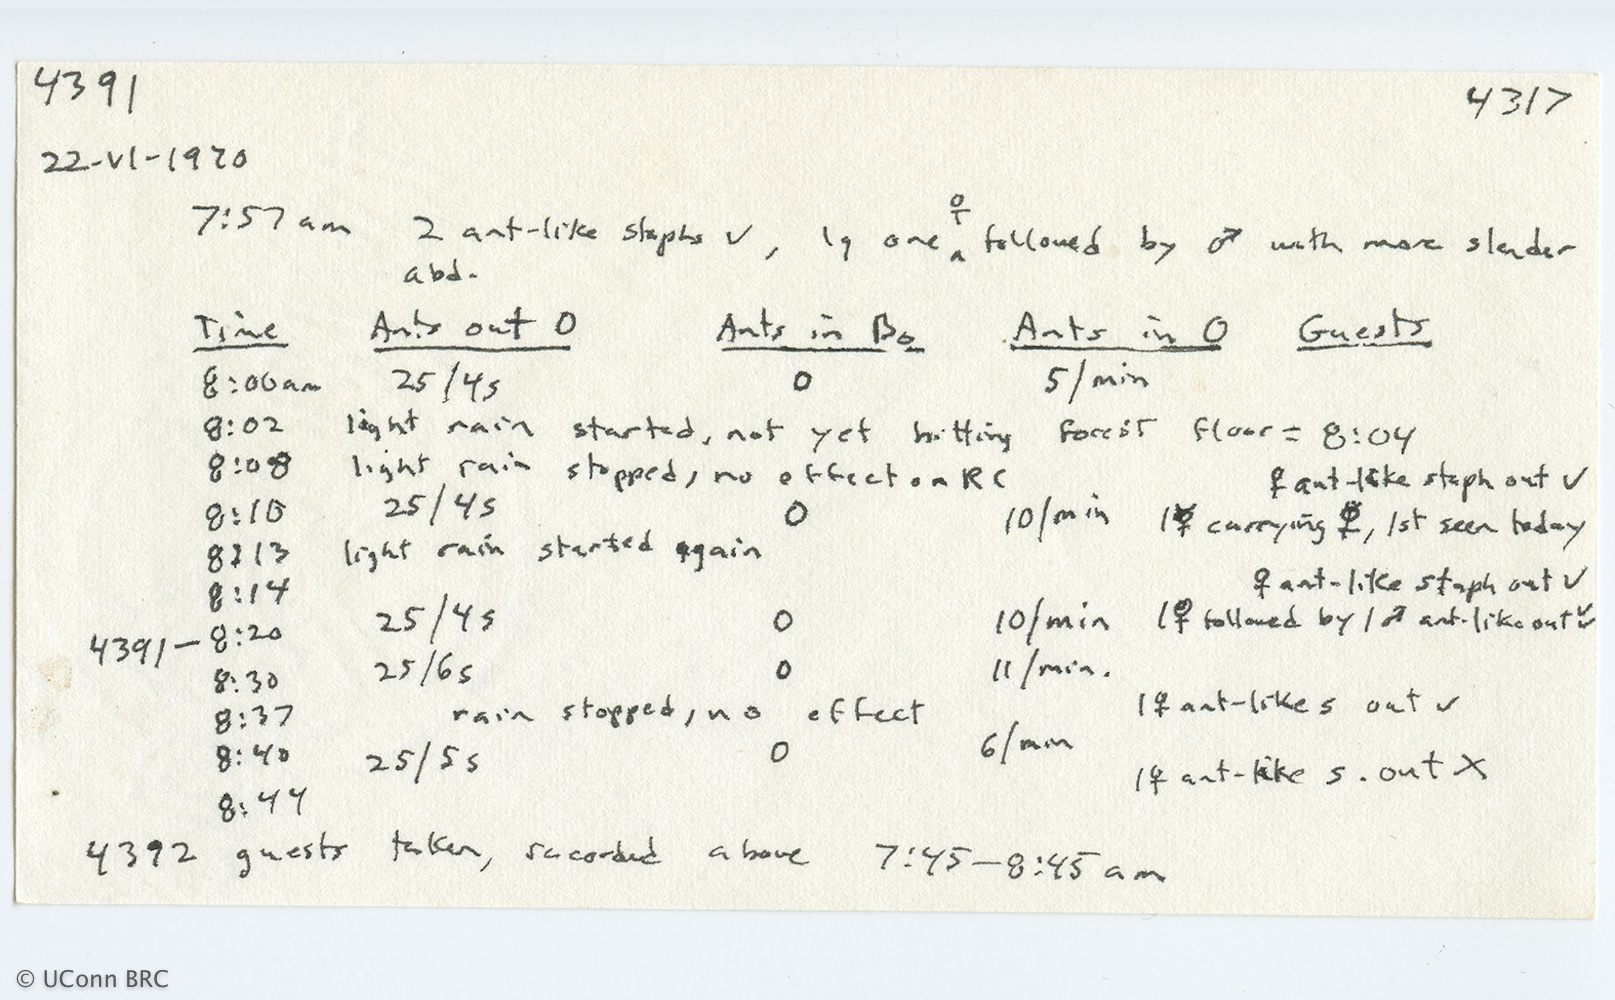 4391 4317
22-VI-1970
♀
7:57 am 2 ant-like staphs ✓, lg one ^ followed by ♂ with more slender
abd.
Time Ants out O Ants in Bo Ants in O Guests
8:00 am 25/4s 0 5/min
8:02 light rain started, not yet hitting forest floor = 8:04
8:08 light rain stopped, no effect on RC ♀ ant-like staph out ✓
8:10 25/4s 0 10/min 1 carrying, 1st seen today
8:13 light rain started again
8:14 ♀ ant-like staph out ✓
4391 — 8:20 25/4s 0 10/min 1♀ followed by 1♂ ant-like out ✓
8:30 25/6s 0 11/min.
8:37 rain stopped, no effect 1♀ ant-like s out ✓
8:40 25/5s 0 6/min
8:44 1♀ ant-like s. out X
4392 guests taken, recorded above 7:45—8:45 am
© UConn BRC